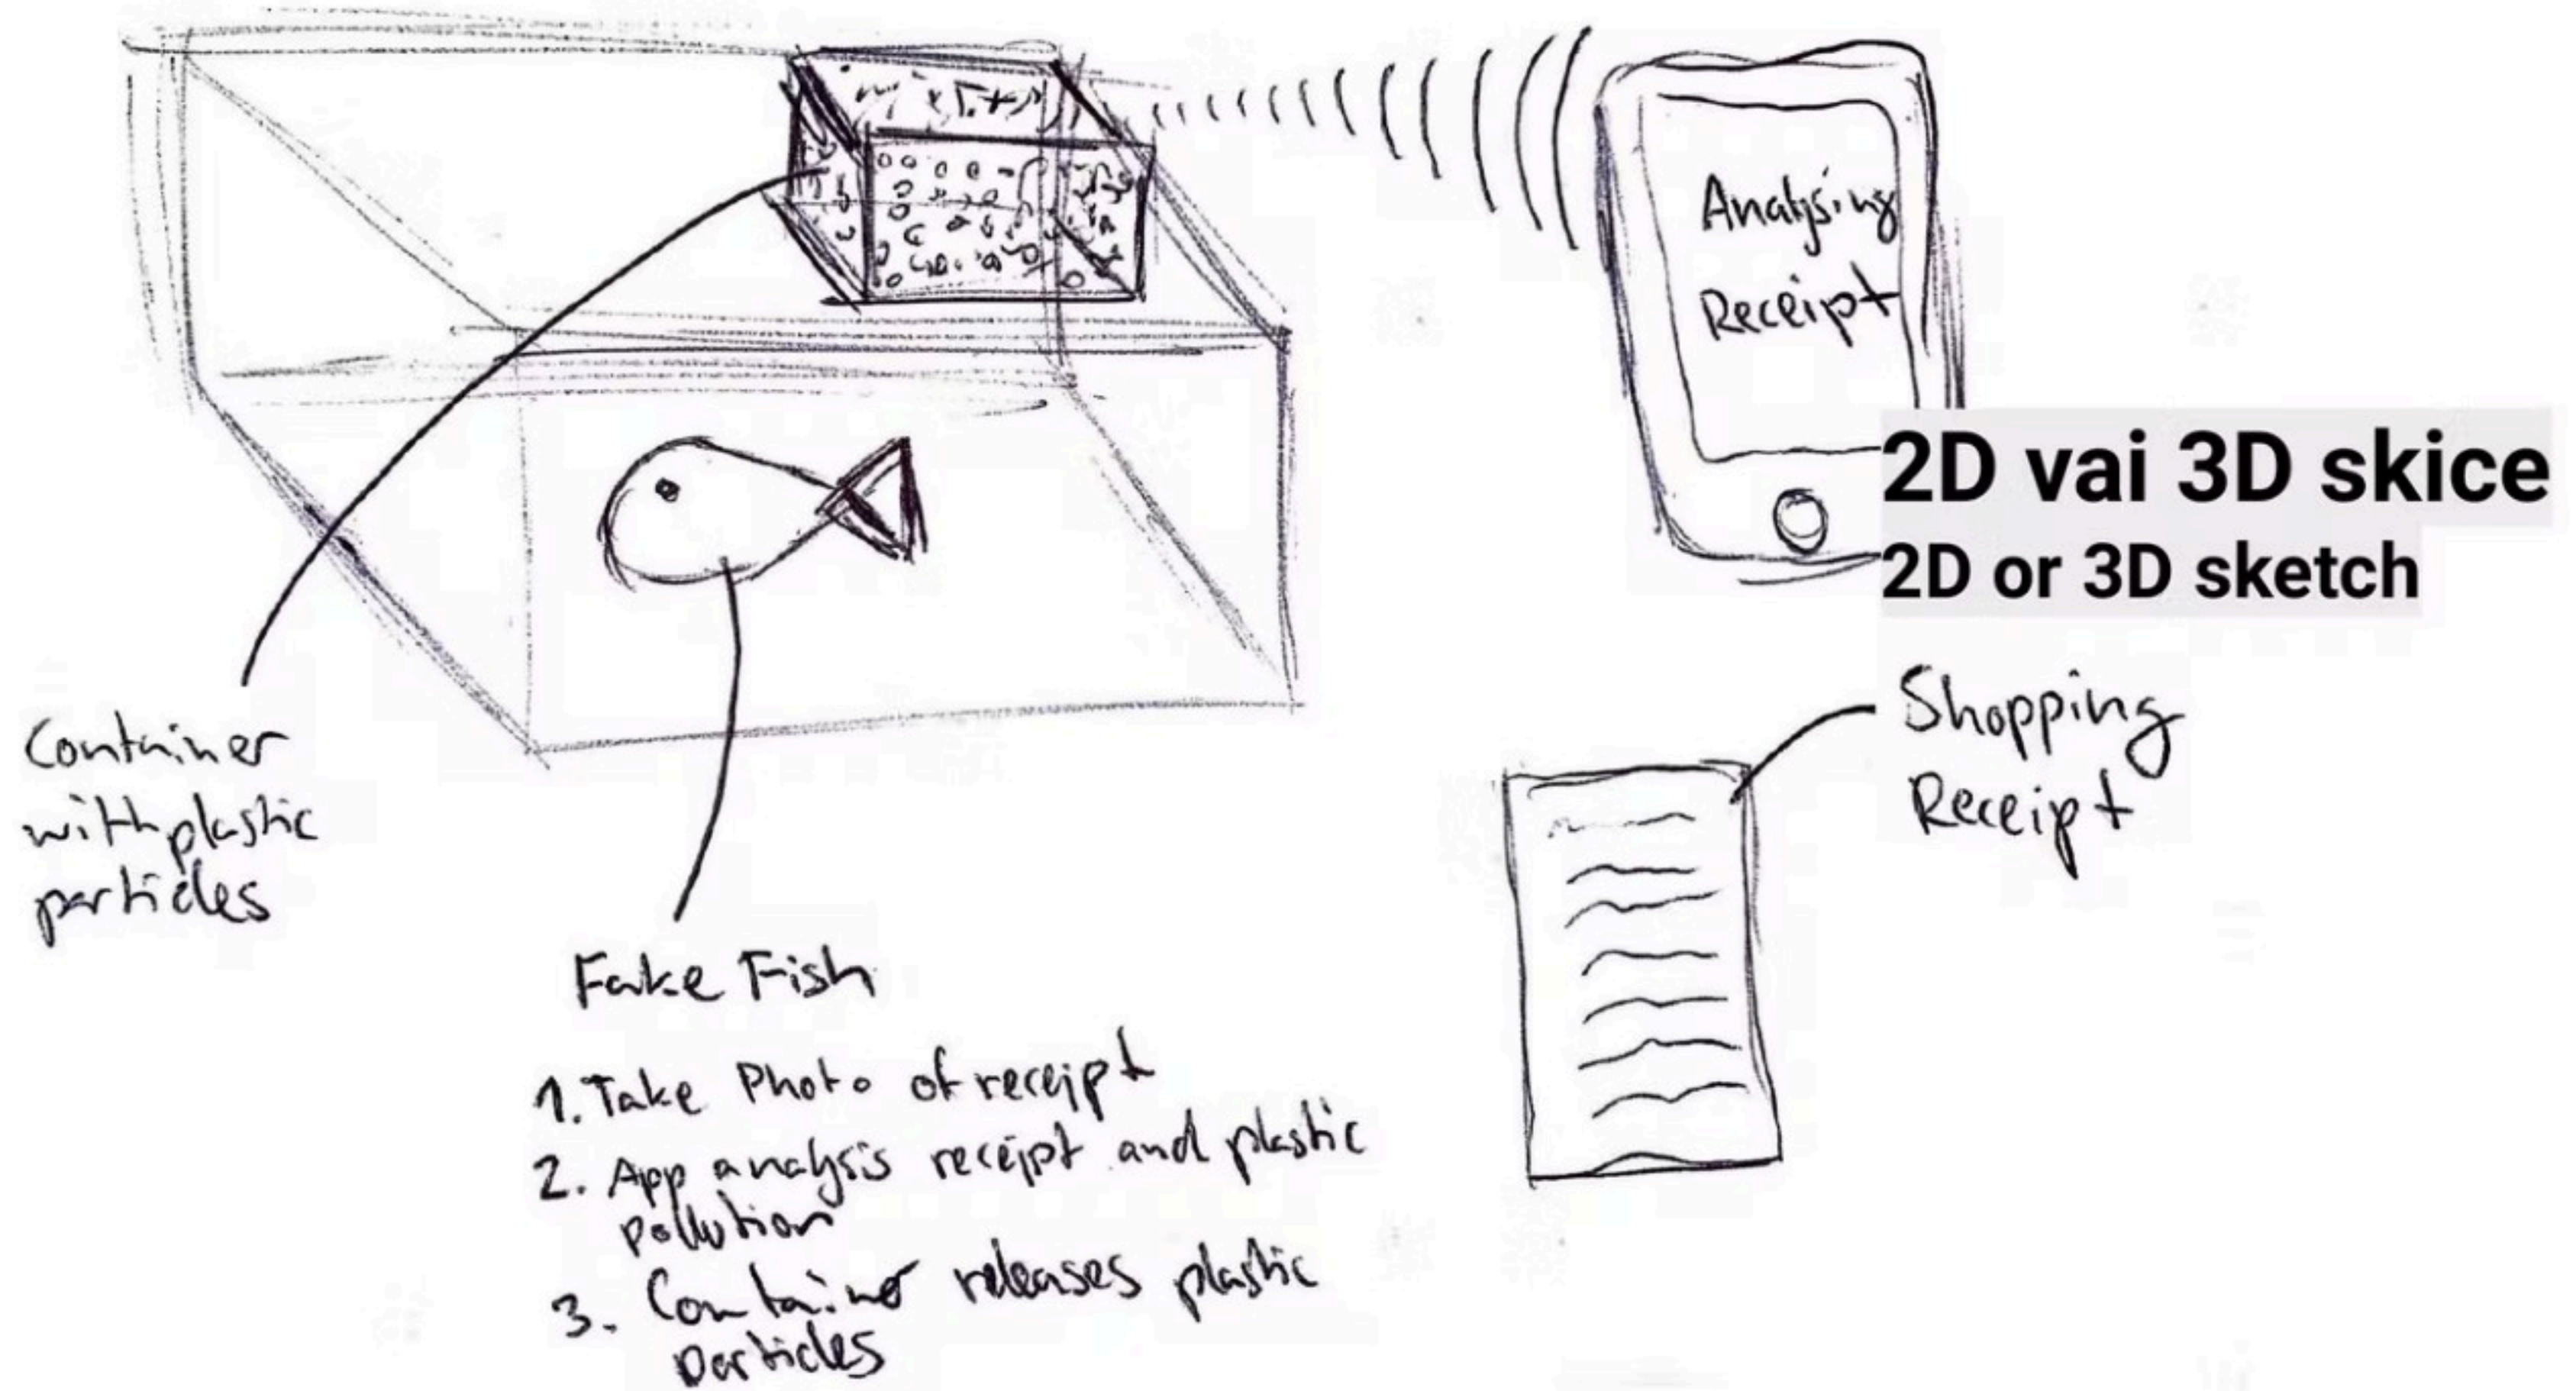 Analysing
Receipt
2D vai 3D skice
2D or 3D sketch
Shopping
Receipt
Container
with plastic
particles
Fake Fish
1. Take Photo of receipt
2. App analysis receipt and plastic
pollution
3. Container releases plastic
particles